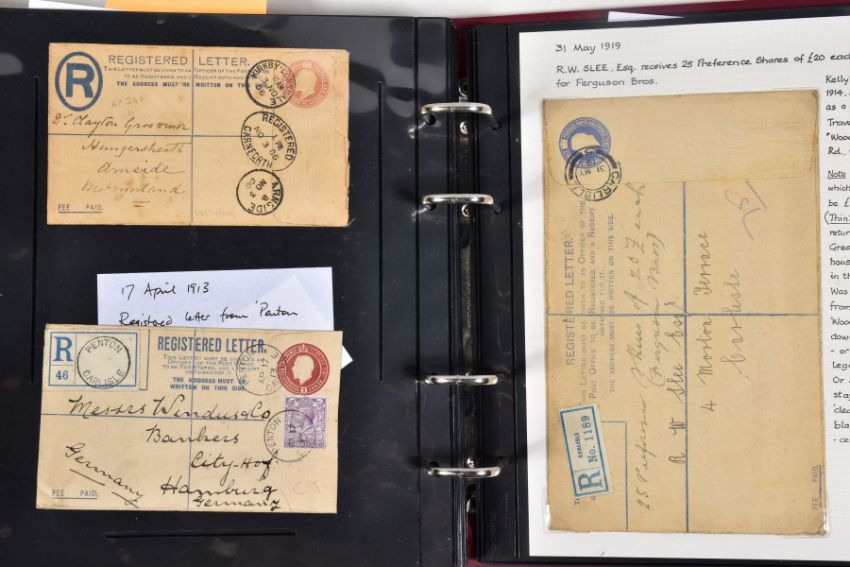 REGISTERED LETTER.
THIS LETTER MUST BE GIVEN TO AN OFFICER OF THE POST OFFICE
TO BE REGISTERED, AND A RECEIPT
THE ADDRESS MUST BE WRITTEN ON THIS
R
KIRKBY-LONSDALE
NO 3
06
REGISTERED
1 PM
NO 3 06
CARNFORTH
ARNSIDE
NO 3
06
Dr. Clayton Grosvenor
Hungersheath
Arnside
Westmorland
FEE PAID.
17 April 1913
Registered letter from 'Penton
R
46
PENTON
CARLISLE
REGISTERED LETTER.
THIS LETTER MUST BE
OFFICER OF THE POST
THE ADDRESS MUST BE
WRITTEN ON THIS SIDE
PENTON
Messrs Windus & Co
Bankers
City-Hof
Hamburg
Germany
Germany
FEE PAID.
31 May 1919
R.W. SLEE, Esq. receives 25 Preference Shares of £20 each
for Ferguson Bros.
Kelly'
1914,
as a
Trav
"Woo
Rd.,
Note
which
be £
(Thin
retur
Grea
hous
in th
Was
from
Wood
dow
- or
Lega
Or
stay
'clea
bla
- ce
CARLISLE
31 MY
REGISTERED LETTER.
THIS LETTER MUST BE GIVEN TO AN OFFICER OF THE
POST OFFICE TO BE REGISTERED, AND A RECEIPT
OBTAINED FOR IT.
THE ADDRESS MUST BE WRITTEN ON THIS SIDE.
25 Preference Shares of 20£ each
(Ferguson Bros)
R W Slee Esqr.
4 Morton Terrace
Carlisle
CARLISLE
R No. 1189
FEE PAID.